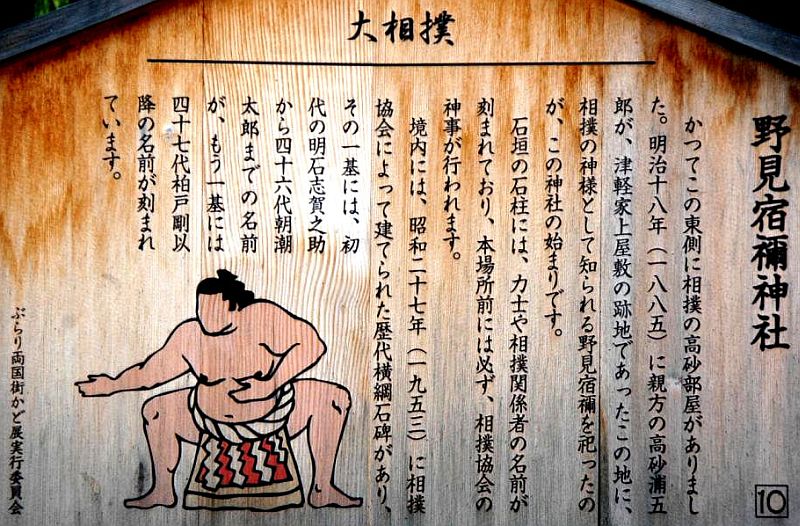 大相撲
野見宿禰神社
かつてこの東側に相撲の高砂部屋がありまし
た。明治十八年（一八八五）に親方の高砂浦五
郎が、津軽家上屋敷の跡地であったこの地に、
相撲の神様として知られる野見宿禰を祀ったの
が、この神社の始まりです。
石垣の石柱には、力士や相撲関係者の名前が
刻まれており、本場所前には必ず、相撲協会の
神事が行われます。
境内には、昭和二十七年（一九五三）に相撲
協会によって建てられた歴代横綱石碑があり、
その一基には、初
代の明石志賀之助
から四十六代朝潮
太郎までの名前
が、もう一基には
四十七代柏戸剛以
降の名前が刻まれ
ています。
ぶらり両国街かど展実行委員会
10